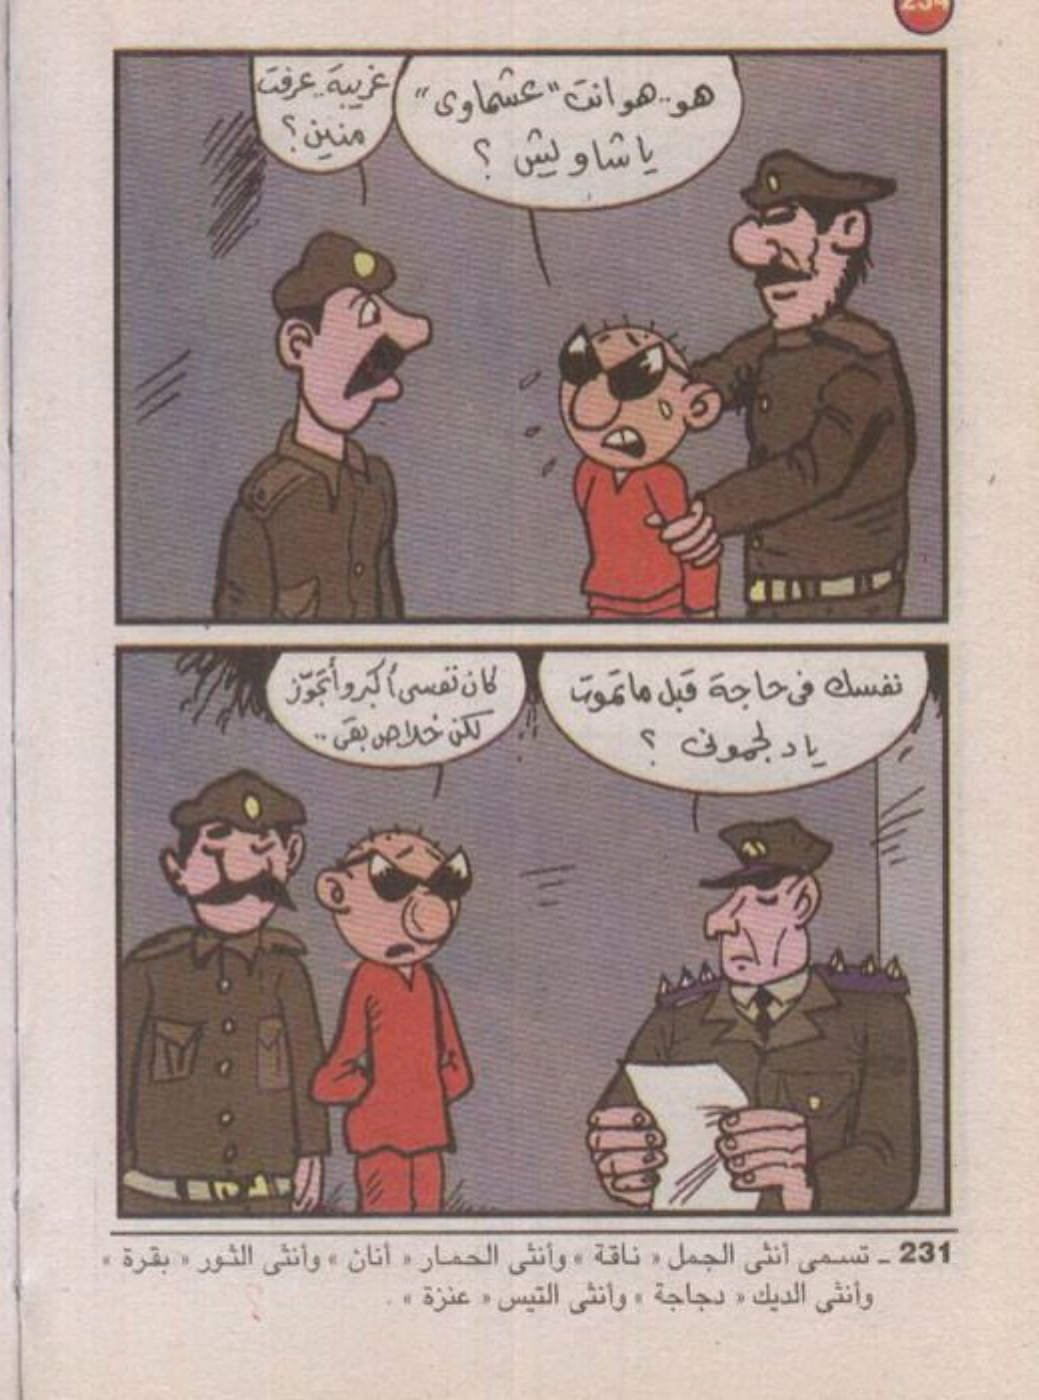 234
هو.. هو انت "عشماوى"
يا شاويش ؟
غريبة.. عرفت
منين ؟
نفسك فى حاجة قبل ما تموت
ياد لجمونى ؟
كان نفسى أكبر وأتجوّز
لكن خلاص بقى ..
231 ـ تسمى أنثى الجمل « ناقة » وأنثى الحمـار « أتان » وأنثى الثـور « بقـرة »
وأنثى الديك « دجاجة » وأنثى التيس « عنزة » .